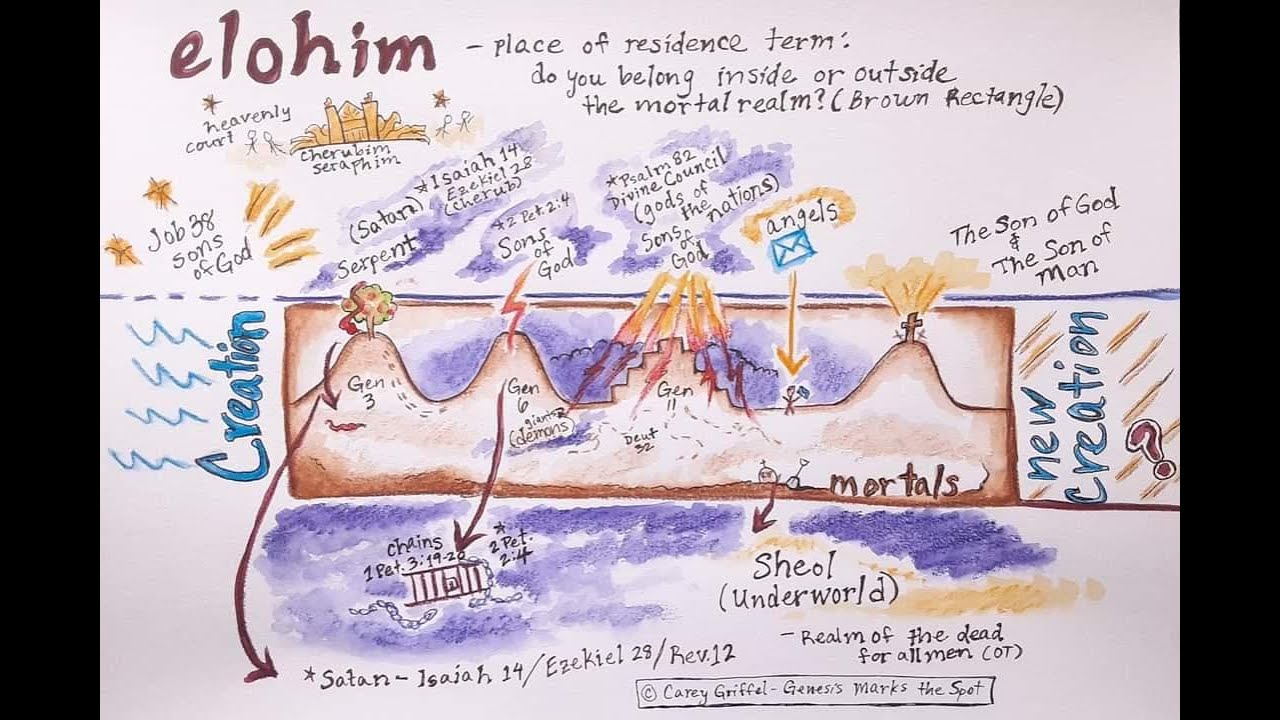 elohim - place of residence term:
do you belong inside or outside
the mortal realm? (Brown Rectangle)
heavenly
court
cherubim
seraphim
Job 38
sons
of God
(Satan)
Serpent
*Isaiah 14
Ezekiel 28
(cherub)
*2 Pet. 2:4
Sons
of
God
*Psalm 82
Divine Council
(gods of
the nations)
Sons
of
God
angels
The Son of God
&
The Son of
Man
Creation
Gen
3
Gen
6
giants
(demons)
Gen
11
Deut
32
mortals
new
creation
?
chains
1 Pet. 3:19-20
*
2 Pet.
2:4
Sheol
(Underworld)
- Realm of the dead
for all men (OT)
*Satan - Isaiah 14/Ezekiel 28/Rev. 12
© Carey Griffel - Genesis Marks the Spot